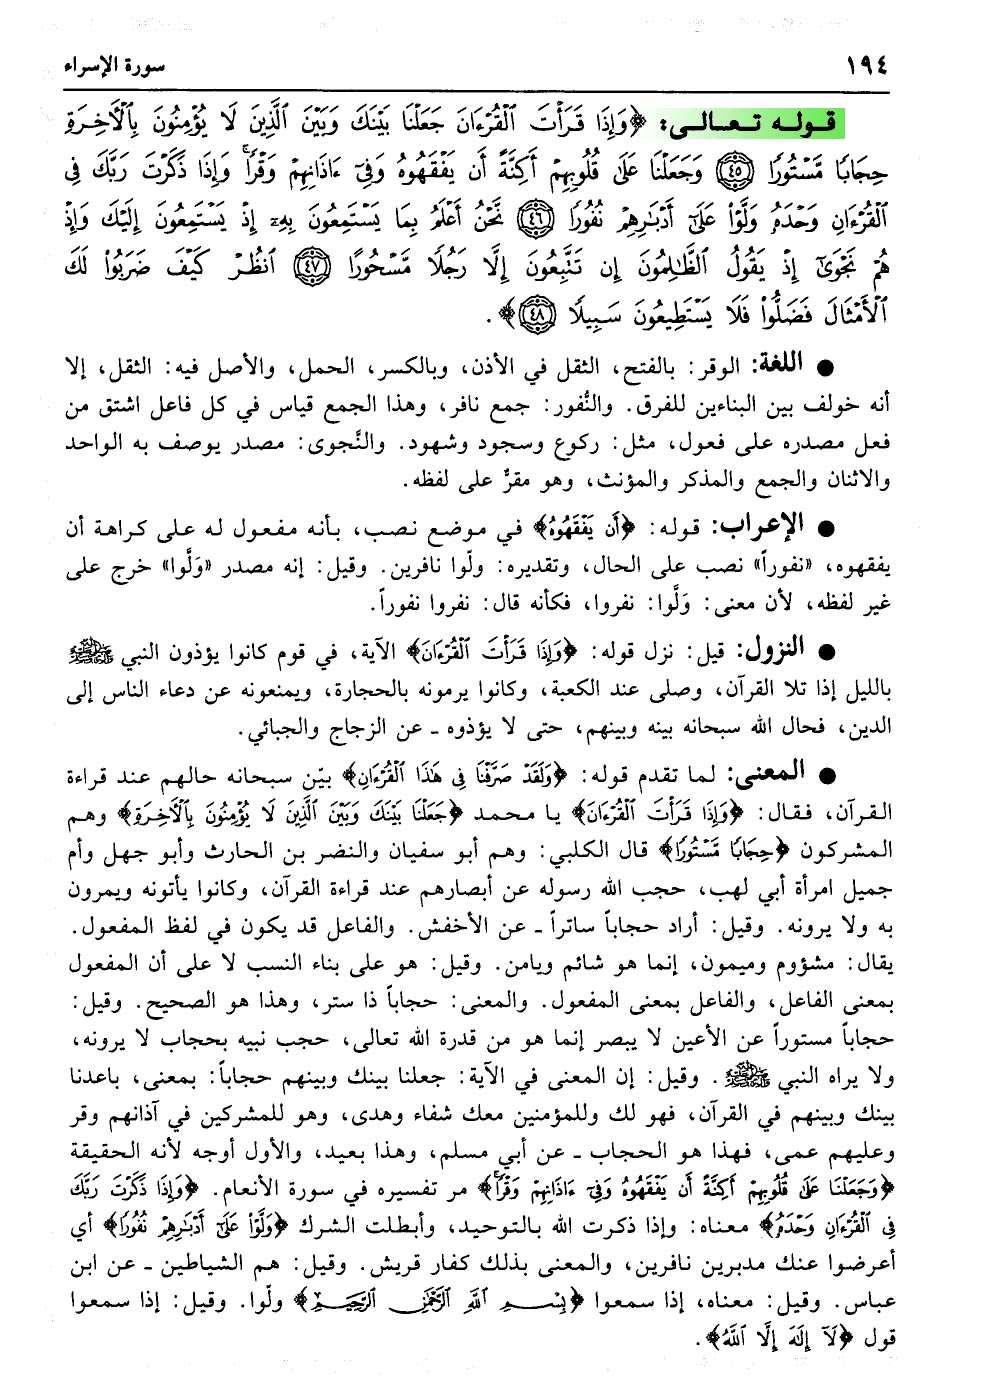 ١٩٤ سورة الإسراء
قوله تعالى: ﴿وَإِذَا قَرَأْتَ ٱلْقُرْءَانَ جَعَلْنَا بَيْنَكَ وَبَيْنَ ٱلَّذِينَ لَا يُؤْمِنُونَ بِٱلْأَخِرَةِ
حِجَابًا مَّسْتُورًا ﴿٤٥﴾ وَجَعَلْنَا عَلَىٰ قُلُوبِهِمْ أَكِنَّةً أَن يَفْقَهُوهُ وَفِىٓ ءَاذَانِهِمْ وَقْرًا ۚ وَإِذَا ذَكَرْتَ رَبَّكَ فِى
ٱلْقُرْءَانِ وَحْدَهُۥ وَلَّوْا۟ عَلَىٰٓ أَدْبَـٰرِهِمْ نُفُورًا ﴿٤٦﴾ نَّحْنُ أَعْلَمُ بِمَا يَسْتَمِعُونَ بِهِۦٓ إِذْ يَسْتَمِعُونَ إِلَيْكَ وَإِذْ
هُمْ نَجْوَىٰٓ إِذْ يَقُولُ ٱلظَّـٰلِمُونَ إِن تَتَّبِعُونَ إِلَّا رَجُلًا مَّسْحُورًا ﴿٤٧﴾ ٱنظُرْ كَيْفَ ضَرَبُوا۟ لَكَ
ٱلْأَمْثَالَ فَضَلُّوا۟ فَلَا يَسْتَطِيعُونَ سَبِيلًا ﴿٤٨﴾﴾.
● اللغة: الوقر: بالفتح، الثقل في الأذن، وبالكسر، الحمل، والأصل فيه: الثقل، إلا
أنه خولف بين البناءين للفرق. والنُّفور: جمع نافر، وهذا الجمع قياس في كل فاعل اشتق من
فعل مصدره على فعول، مثل: ركوع وسجود وشهود. والنَّجوى: مصدر يوصف به الواحد
والاثنان والجمع والمذكر والمؤنث، وهو مقرٌّ على لفظه.
● الإعراب: قوله: ﴿أَن يَفْقَهُوهُ﴾ في موضع نصب، بأنه مفعول له على كراهة أن
يفقهوه، «نفوراً» نصب على الحال، وتقديره: ولّوا نافرين. وقيل: إنه مصدر «وَلَّوا» خرج على
غير لفظه، لأن معنى: وَلَّوا: نفروا، فكأنه قال: نفروا نفوراً.
● النزول: قيل: نزل قوله: ﴿وَإِذَا قَرَأْتَ ٱلْقُرْءَانَ﴾ الآية، في قوم كانوا يؤذون النبي ﷺ
بالليل إذا تلا القرآن، وصلى عند الكعبة، وكانوا يرمونه بالحجارة، ويمنعونه عن دعاء الناس إلى
الدين، فحال الله سبحانه بينه وبينهم، حتى لا يؤذوه ـ عن الزجاج والجبائي.
● المعنى: لما تقدم قوله: ﴿وَلَقَدْ صَرَّفْنَا فِى هَـٰذَا ٱلْقُرْءَانِ﴾ بيّن سبحانه حالهم عند قراءة
القرآن، فقال: ﴿وَإِذَا قَرَأْتَ ٱلْقُرْءَانَ﴾ يا محمد ﴿جَعَلْنَا بَيْنَكَ وَبَيْنَ ٱلَّذِينَ لَا يُؤْمِنُونَ بِٱلْأَخِرَةِ﴾ وهم
المشركون ﴿حِجَابًا مَّسْتُورًا﴾ قال الكلبي: وهم أبو سفيان والنضر بن الحارث وأبو جهل وأم
جميل امرأة أبي لهب، حجب الله رسوله عن أبصارهم عند قراءة القرآن، وكانوا يأتونه ويمرون
به ولا يرونه. وقيل: أراد حجاباً ساتراً ـ عن الأخفش. والفاعل قد يكون في لفظ المفعول.
يقال: مشؤوم وميمون، إنما هو شائم ويامن. وقيل: هو على بناء النسب لا على أن المفعول
بمعنى الفاعل، والفاعل بمعنى المفعول. والمعنى: حجاباً ذا ستر، وهذا هو الصحيح. وقيل:
حجاباً مستوراً عن الأعين لا يبصر إنما هو من قدرة الله تعالى، حجب نبيه بحجاب لا يرونه،
ولا يراه النبي ﷺ. وقيل: إن المعنى في الآية: جعلنا بينك وبينهم حجاباً: بمعنى، باعدنا
بينك وبينهم في القرآن، فهو لك وللمؤمنين معك شفاء وهدى، وهو للمشركين في آذانهم وقر
وعليهم عمى، فهذا هو الحجاب ـ عن أبي مسلم، وهذا بعيد، والأول أوجه لأنه الحقيقة
﴿وَجَعَلْنَا عَلَىٰ قُلُوبِهِمْ أَكِنَّةً أَن يَفْقَهُوهُ وَفِىٓ ءَاذَانِهِمْ وَقْرًا ۚ﴾ مر تفسيره في سورة الأنعام. ﴿وَإِذَا ذَكَرْتَ رَبَّكَ
فِى ٱلْقُرْءَانِ وَحْدَهُۥ﴾ معناه: وإذا ذكرت الله بالتوحيد، وأبطلت الشرك ﴿وَلَّوْا۟ عَلَىٰٓ أَدْبَـٰرِهِمْ نُفُورًا﴾ أي
أعرضوا عنك مدبرين نافرين، والمعنى بذلك كفار قريش. وقيل: هم الشياطين ـ عن ابن
عباس. وقيل: معناه، إذا سمعوا ﴿بِسْمِ ٱللَّهِ ٱلرَّحْمَـٰنِ ٱلرَّحِيمِ﴾ ولّوا. وقيل: إذا سمعوا
قول ﴿لَآ إِلَـٰهَ إِلَّا ٱللَّهُ﴾.